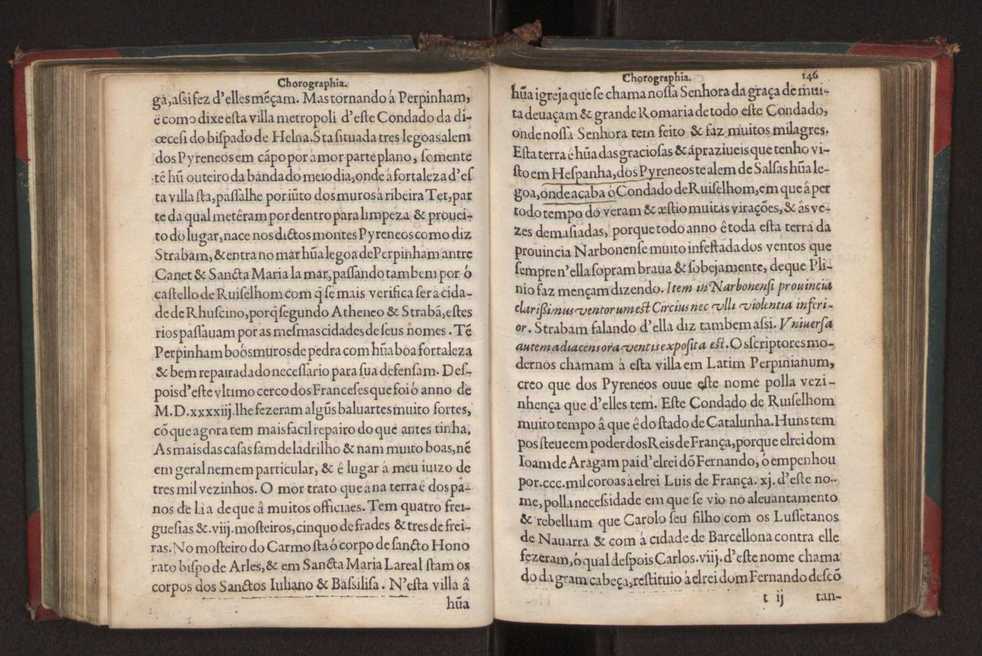 Chorographia.
ga,assi fez d'elles mẽçam. Mas tornando â Perpinham,
é como dixe esta villa metropoli d'este Condado da di-
œcesi do bispado de Helna. Sta situada tres legoas alem
dos Pyreneos em cãpo por a mor parte plano, somente
tẽ hũ outeiro da banda do meio dia, onde â fortaleza d'es
ta villa sta, passalhe por iũto dos muros â ribeira Tet, par
te da qual metêram por dentro para limpeza & prouei-
to do lugar, nace nos dictos montes Pyreneos como diz
Strabam, & entra no mar hũa legoa de Perpinham antre
Canet & Sancta Maria la mar, passando tambem por ó
castello de Ruiselhom com q̃ se mais verifica ser a cida-
de de Rhuscino, porq̃ segundo Atheneo & Strabã, estes
rios passauam por as mesmas cidades de seus nomes. Tẽ
Perpinham boõs muros de pedra com hũa boa fortaleza
& bem repairada do necessario para sua defensam. Des-
pois d'este vltimo cerco dos Franceses que foi ó anno de
M.D.xxxxiij. lhe fezeram algũs baluartes muito fortes,
cõ que agora tem mais facil repairo do que antes tinha.
As mais das casas sam de ladrilho & nam muito boas, nẽ
em geral nem em particular, & é lugar â meu iuizo de
tres mil vezinhos. O mor trato que â na terra é dos pa-
nos de lãa de que â muitos officiaes. Tem quatro frei-
guesias &.viij. mosteiros, cinquo de frades & tres de frei-
ras. No mosteiro do Carmo sta ó corpo de sancto Hono
rato bispo de Arles, & em Sancta Maria Lareal stam os
corpos dos Sanctos Iuliano & Bassilisa. N'esta villa â
hũa
Chorographia. 146
hũa igreja que se chama nossa Senhora da graça de mui-
ta deuaçam & grande Romaria de todo este Condado,
onde nossa Senhora tem feito & faz muitos milagres.
Esta terra é hũa das graciosas & âpraziueis que tenho vi-
sto em Hespanha, dos Pyreneos te alem de Salsas hũa le-
goa, onde acaba ó Condado de Ruiselhom, em que â per
todo tempo do veram & æstio muitas virações, & âs ve-
zes demasiadas, porque todo anno é toda esta terra da
prouincia Narbonense muito infestada dos ventos que
sempre n'ella sopram braua & sobejamente, de que Pli-
nio faz mençam dizendo. Item in Narbonensi prouincia
clarissimus ventorum est Circius nec vlli violentia inferi-
or. Strabam falando d'ella diz tambem assi. Vniuersa
autem adiacens ora ventis exposita est. Os scriptores mo-
dernos chamam â esta villa em Latim Perpinianum,
creo que dos Pyreneos ouue este nome polla vezi-
nhença que d'elles tem. Este Condado de Ruiselhom
muito tempo â que é do stado de Catalunha. Huns tem
pos steue em poder dos Reis de França, porque elrei dom
Ioam de Aragam pai d'elrei dõ Fernando, ó empenhou
por.ccc. mil coroas â elrei Luis de França. xj. d'este no-
me, polla necessidade em que se vio no aleuantamento
& rebelliam que Carolo seu filho com os Lussetanos
de Nauarra & com â cidade de Barcellona contra elle
fezeram, ó qual despois Carlos.viij. d'este nome chama
do da gram cabeça, restituio â elrei dom Fernando descõ
t ij tan-